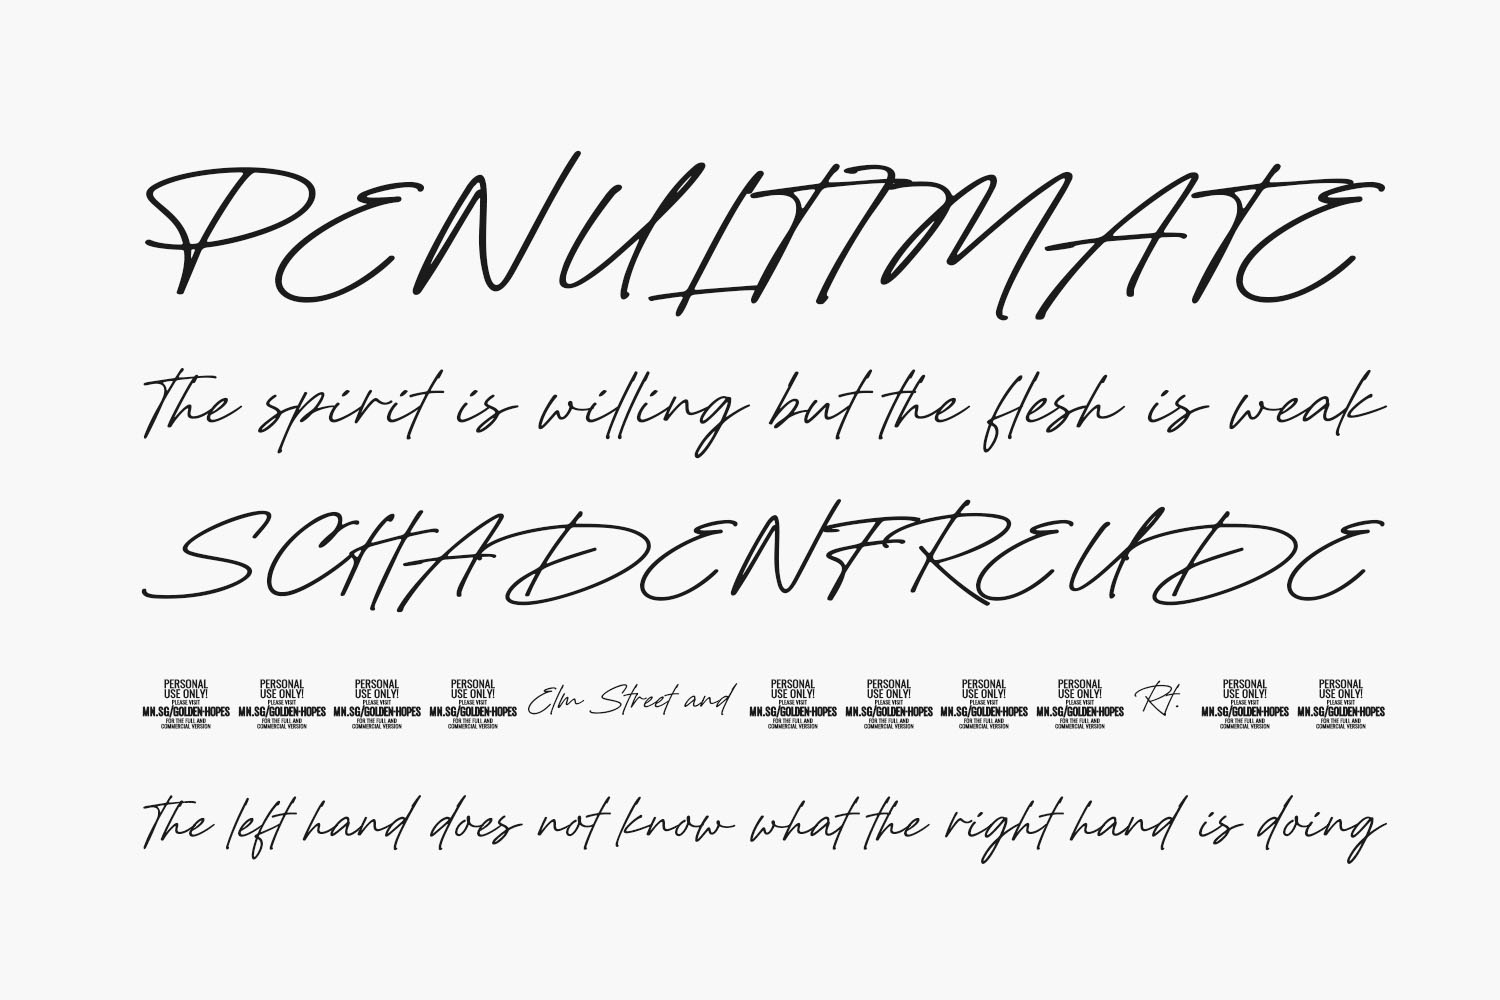 PENULTIMATE
The spirit is willing but the flesh is weak
SCHADENFREUDE
PERSONAL USE ONLY! PLEASE VISIT MN.SG/GOLDEN-HOPES FOR THE FULL AND COMMERCIAL VERSION PERSONAL USE ONLY! PLEASE VISIT MN.SG/GOLDEN-HOPES FOR THE FULL AND COMMERCIAL VERSION PERSONAL USE ONLY! PLEASE VISIT MN.SG/GOLDEN-HOPES FOR THE FULL AND COMMERCIAL VERSION PERSONAL USE ONLY! PLEASE VISIT MN.SG/GOLDEN-HOPES FOR THE FULL AND COMMERCIAL VERSION Elm Street and PERSONAL USE ONLY! PLEASE VISIT MN.SG/GOLDEN-HOPES FOR THE FULL AND COMMERCIAL VERSION PERSONAL USE ONLY! PLEASE VISIT MN.SG/GOLDEN-HOPES FOR THE FULL AND COMMERCIAL VERSION PERSONAL USE ONLY! PLEASE VISIT MN.SG/GOLDEN-HOPES FOR THE FULL AND COMMERCIAL VERSION PERSONAL USE ONLY! PLEASE VISIT MN.SG/GOLDEN-HOPES FOR THE FULL AND COMMERCIAL VERSION Rt. PERSONAL USE ONLY! PLEASE VISIT MN.SG/GOLDEN-HOPES FOR THE FULL AND COMMERCIAL VERSION PERSONAL USE ONLY! PLEASE VISIT MN.SG/GOLDEN-HOPES FOR THE FULL AND COMMERCIAL VERSION
The left hand does not know what the right hand is doing